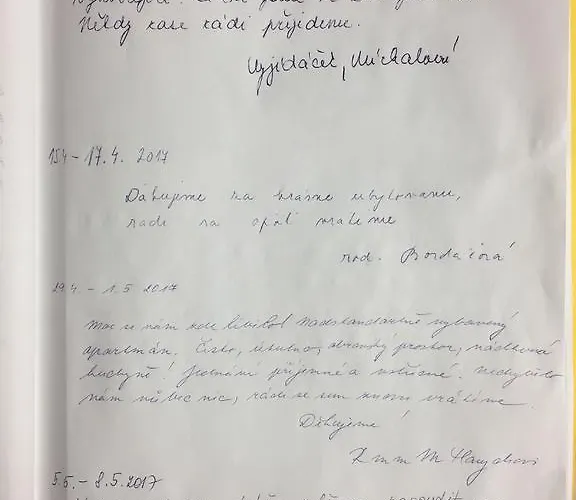 Někdy zase rádi přijdeme.
Vyjídáček, Michalovi
15.4 - 17.4. 2017
Ďakujeme za krásne ubytovanie,
radi sa opäť vrátime
rod.
29.4. - 1.5 2017
Moc se nám zde líbilo! Nadstandardně vybavený
apartmán. Čisto, útulno, obrovský prostor, nádherná
kuchyně! Jednání příjemné a vstřícné. Nechybělo
nám vůbec nic, rádi se sem znovu vrátíme.
Děkujeme!
M
5.5. - 8.5.2017